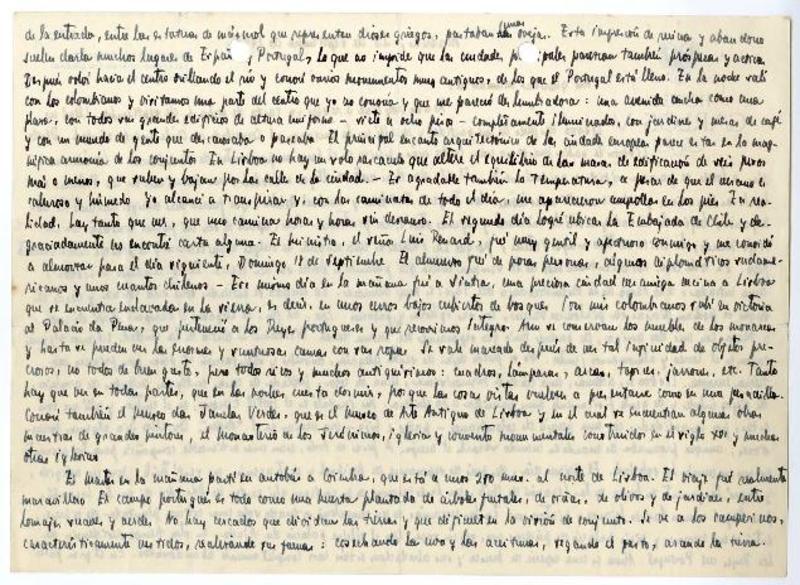 de la entrada, entre las estatuas de mármol que representan dioses griegos, pastaban unas ovejas. Esta impresión de ruina y abandono
suelen darla muchos lugares de España y Portugal, lo que no impide que las ciudades principales parezcan también prósperas y activas.
Después volví hacia el centro orillando el río y conocí varios monumentos muy antiguos, de los que el Portugal está lleno. En la noche salí
con los colombianos y visitamos una parte del centro que yo no conocía y que me pareció deslumbradora: una avenida ancha como una
plaza, con todos sus grandes edificios de altura uniforme - siete u ocho pisos - completamente iluminados, con jardines y mesas de café
y con un mundo de gente que descansaba o paseaba. El principal encanto arquitectónico de las ciudades europeas parece estar en la mag-
nífica armonía de los conjuntos. En Lisboa no hay un solo rascacielo que altere el equilibrio de las masas de edificación de seis pisos
más o menos, que suben y bajan por las calles de la ciudad. - Es agradable también la temperatura, a pesar de que el verano es
caluroso y húmedo. Yo alcancé a transpirar y, con las caminatas de todo el día, me aparecieron ampollas en los pies. En rea-
lidad, hay tanto que ver, que uno camina horas y horas sin descanso. El segundo día logré ubicar la Embajada de Chile y des-
graciadamente no encontré carta alguna. El ministro, el señor Luis Renard, fué muy gentil y afectuoso conmigo y me convidó
a almorzar para el día siguiente, Domingo 18 de septiembre. El almuerzo fué de pocas personas, algunos diplomáticos sudame-
ricanos y unos cuantos chilenos - Ese mismo día en la mañana fuí a Sintra, una preciosa ciudad cercana a Lisboa
que se encuentra enclavada en la sierra, es decir, en unos cerros bajos cubiertos de bosques. Con mis colombianos subí en victoria
al Palacio da Pena, que perteneció a los Reyes portugueses y que recorrimos íntegro. Aun se conservan los muebles de los monarcas
y hasta se pueden ver las enormes y suntuosas camas con sus ropas. Se sale mareado después de ver tal infinidad de objetos pre-
ciosos, no todos de buen gusto, pero todos ricos y muchos antiquísimos: cuadros, lámparas, arcas, tapices, jarrones, etc. Tanto
hay que ver en todas partes, que en las noches cuesta dormir, porque las cosas vistas vuelven a presentarse como en una pesadilla.
Conocí también el museo das Janelas Verdes, que es el museo de Arte Antiguo de Lisboa y en el cual se encuentran algunas obras
maestras de grandes pintores, el monasterio de los Jerónimos, iglesia y convento monumentales construídos en el siglo XVI y muchas
otras iglesias
El martes en la mañana partí en autobús a Coimbra, que está a unos 200 kms. al norte de Lisboa. El viaje fué realmente
maravilloso. El campo portugués es todo como una huerta plantada de árboles frutales, de viñas, de olivos y de jardines, entre
lomajes suaves y verdes. No hay cercados que dividan las tierras y que dificulten la visión de conjunto. Se ve a los campesinos,
característicamente vestidos, realizando sus faenas: cosechando la uva y las aceitunas, regando el pasto, arando la tierra.